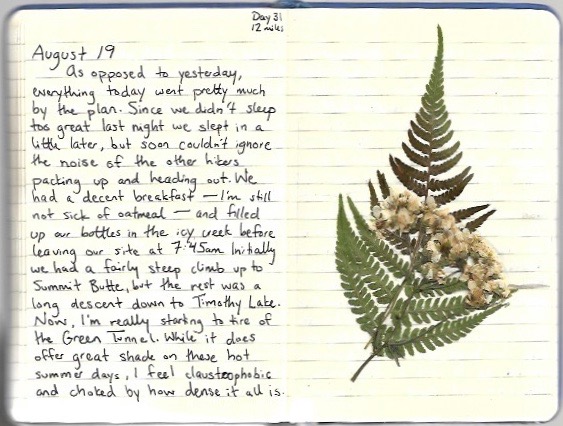 Day 31
12 miles
August 19
As opposed to yesterday,
everything today went pretty much
by the plan. Since we didn't sleep
too great last night we slept in a
little later, but soon couldn't ignore
the noise of the other hikers
packing up and heading out. We
had a decent breakfast — I'm still
not sick of oatmeal — and filled
up our bottles in the icy creek before
leaving our site at 7:45am. Initially
we had a fairly steep climb up to
Summit Butte, but the rest was a
long descent down to Timothy Lake.
Now, I'm really starting to tire of
the Green Tunnel. While it does
offer great shade on these hot
summer days, I feel claustrophobic
and choked by how dense it all is.